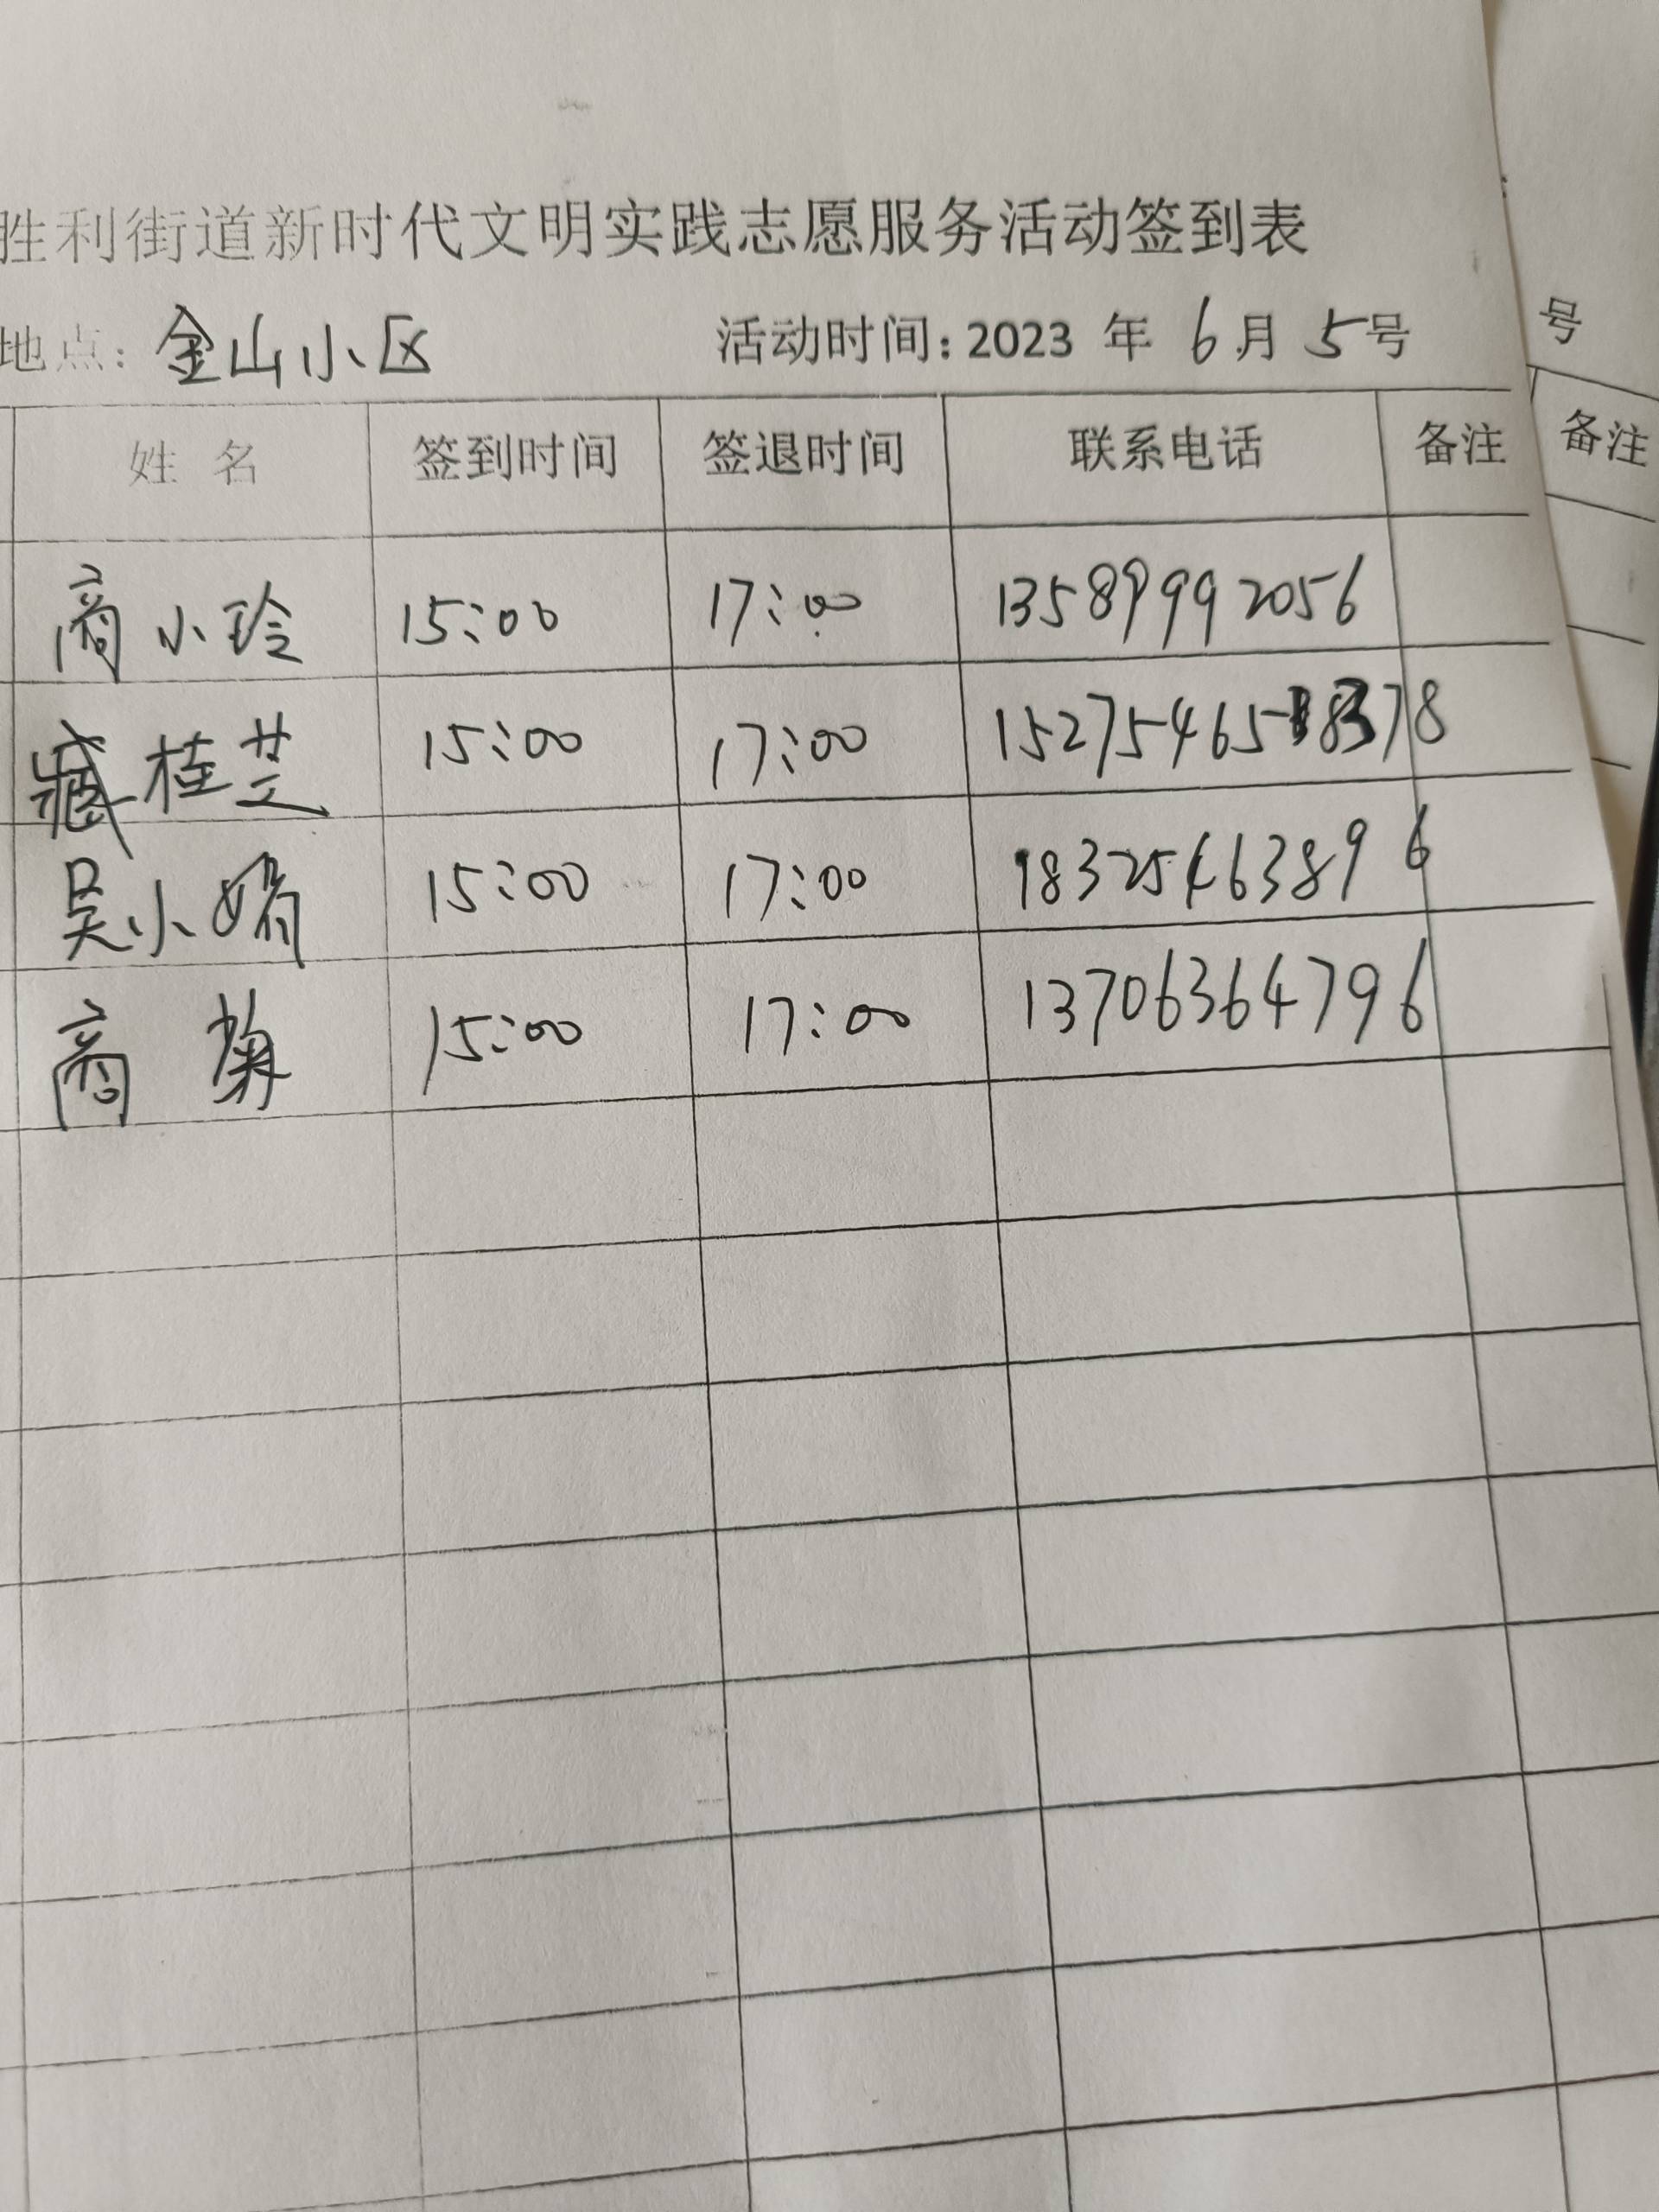 胜利街道新时代文明实践志愿服务活动签到表
地点: 金山小区 活动时间: 2023 年 6 月 5 号
姓 名 签到时间 签退时间 联系电话 备注
商小玲 15:00 17:00 13589992056
臧桂芝 15:00 17:00
吴小娟 15:00 17:00 18325463896
商 菊 15:00 17:00 13706364796
号
备注